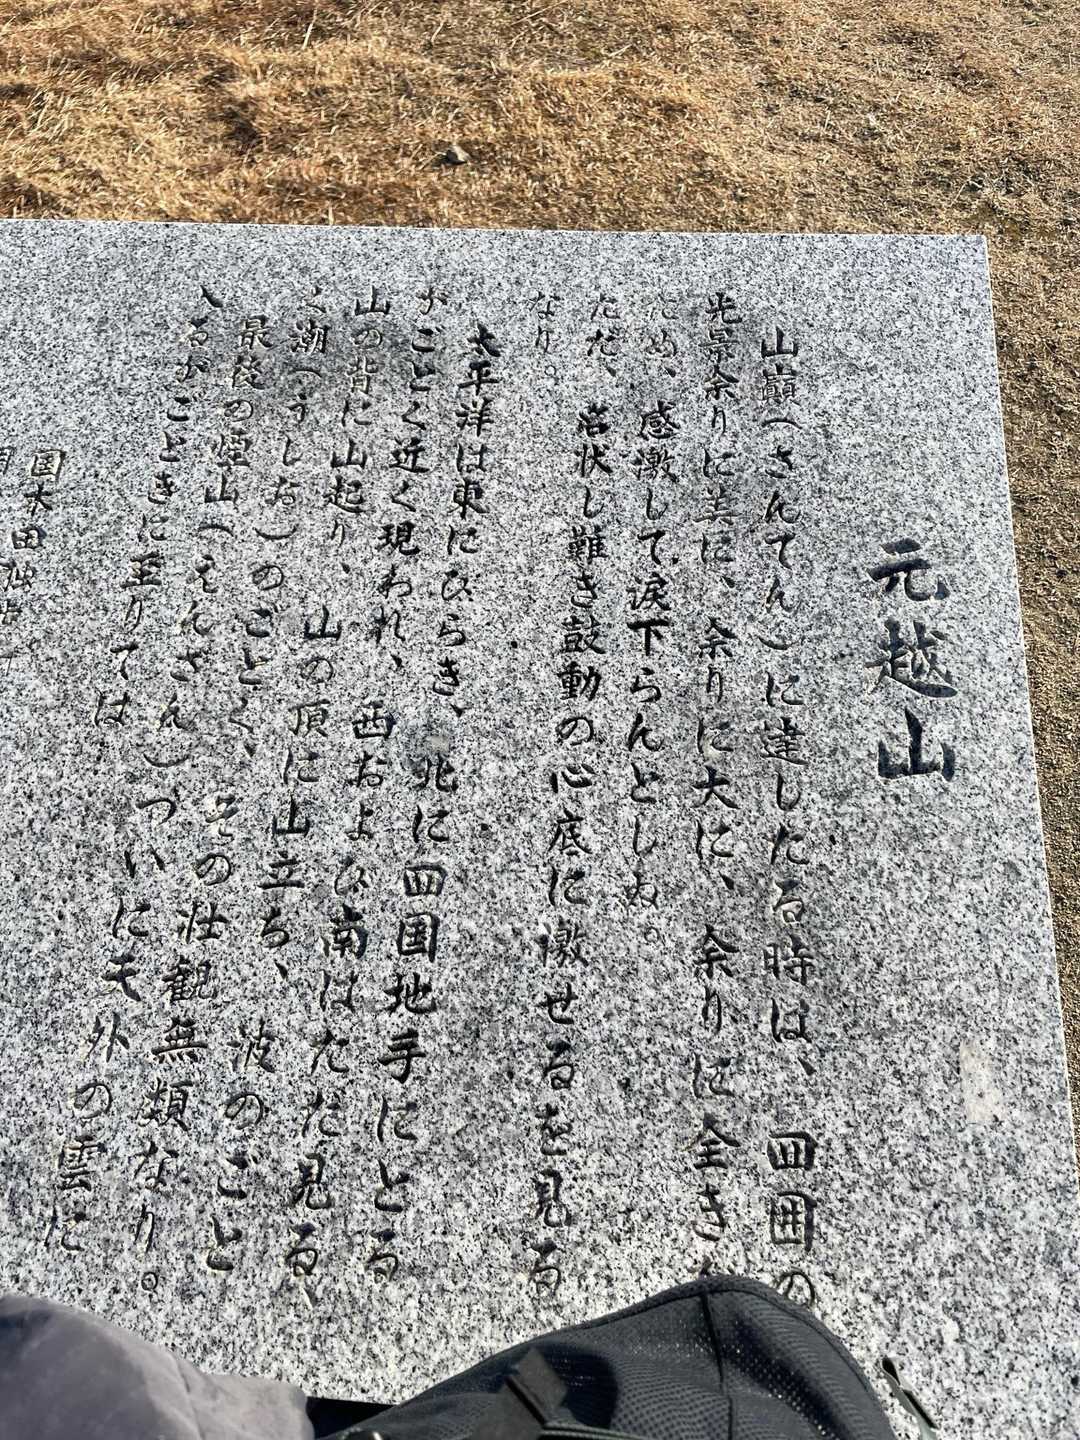 元越山
山巓(さんてん)に達したる時は、四囲の
光景余りに美に、余りに大に、余りに全き
ため、感激して涙下らんとしぬ。
ただ、名状し難き鼓動の心底に激せるを見る
なり。
太平洋は東にひらき、北に四国地手にとる
がごとく近く現われ、西および南はただ見る
山の背に山起り、山の頂に山立ち、波のごと
く潮(うしお)のごとく、その壮観無類なり。
最後の煙山(えんざん)ついに天外の雲に
入るがごときに至りては
国木田独歩